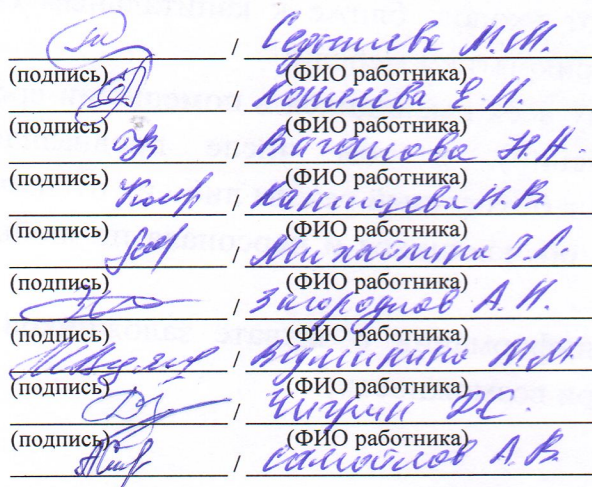 / Седышева М.М.
(подпись) (ФИО работника)
/ Кошелева Е.Н.
(подпись) (ФИО работника)
/ Ваганова Н.Н.
(подпись) (ФИО работника)
/ Канищева Н.В.
(подпись) (ФИО работника)
/ Михайлина Т.Г.
(подпись) (ФИО работника)
/ Загороднов А.Н.
(подпись) (ФИО работника)
/ Ведмицкина М.М.
(подпись) (ФИО работника)
/ Чигрин Д.С.
(подпись) (ФИО работника)
/ Самойлов А.В.